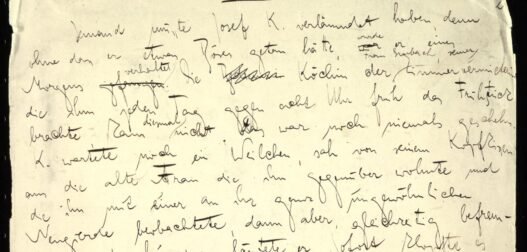 Jemand musste Josef K. verläumdet haben denn
ohne dass er etwas Böses getan hätte, wurde er eines
Frau Grubach, seiner
verhaftet
Morgens gefangen. Die Köchin der Zimmervermieterin
die ihm jeden Tag gegen acht Uhr früh das Frühstück
brachte kam diesmal nicht. Das war noch niemals geschehn.
K. wartete noch ein Weilchen, sah von seinem Kopfkissen
aus die alte Frau die ihm gegenüber wohnte und
die ihn mit einer an ihr ganz ungewöhnlichen
Neugierde beobachtete, dann aber gleichzeitig befrem-
läutete er. Sofort klopfte es